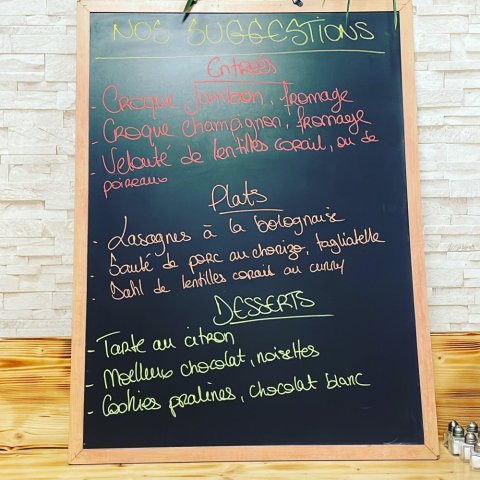 NOS SUGGESTIONS
Entrées
- Croque Jambon, fromage
- Croque champignon, fromage
- Velouté de lentilles corail, ou de
poireaux
Plats
- Lasagnes à la bolognaise
- Sauté de porc au chorizo, tagliatelle
- Dahl de lentilles corail au curry
DESSERTS
- Tarte au citron
- Moelleux chocolat, noisettes
- Cookies pralines, chocolat blanc